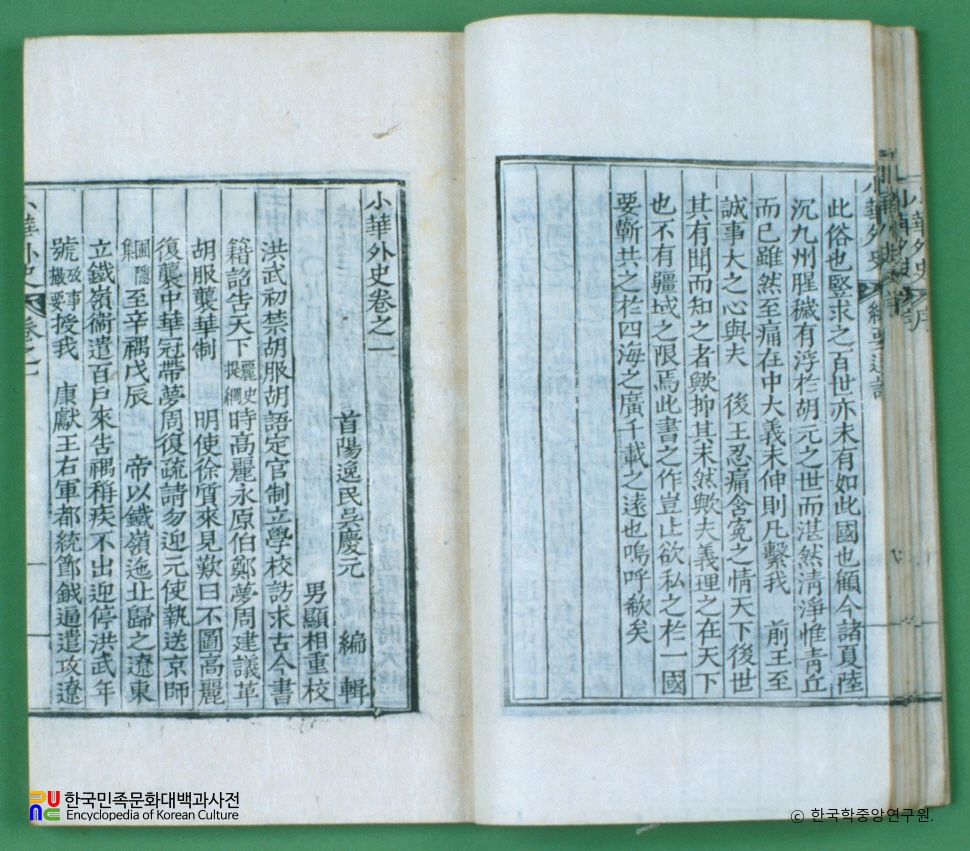 此俗也竪求之百世亦未有如此國也顧今諸夏陸
沉九州腥穢有浮於胡元之世而湛然淸淨惟靑丘
而已雖然至痛在中大義未伸則凡繫我 前王至
誠事大之心與夫 後王忍痛含寃之情天下後世
其有聞而知之者歟抑其未然歟夫義理之在天下
也不有疆域之限焉此書之作豈止欲私之於一國
要斷共之於四海之廣千載之遠也嗚呼欷矣
小華外史卷之一
首陽逸民吳慶元 編輯
男顯相重校
洪武初禁胡服胡語定官制立學校訪求古今書
籍詔告天下麗史提綱時高麗永原伯鄭夢周建議革
胡服襲華制 明使徐質來見歎曰不圖高麗
復襲中華冠帶夢周復疏請勿迎元使執送京師
圃隱集至辛禑戊辰 帝以鐵嶺迤北歸之遼東
立鐵嶺衛遣百戶來告禑稱疾不出迎停洪武年
號攷事撮要授我 康獻王右軍都統節鉞逼遣攻遼
小華外史 卷之一
한국민족문화대백과사전
Encyclopedia of Korean Culture
© 한국학중앙연구원.